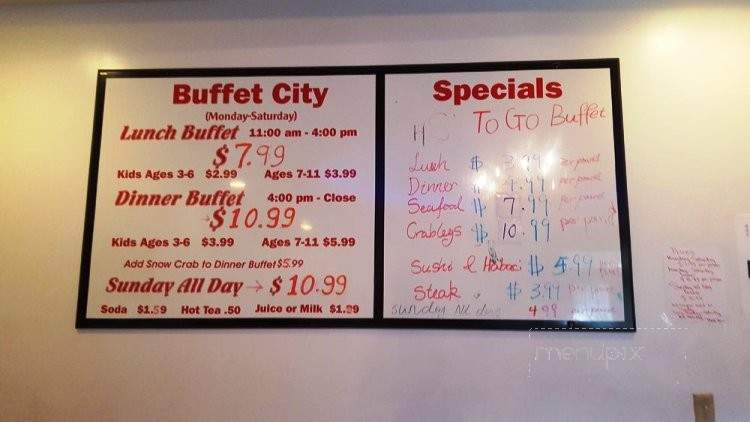 Buffet City
(Monday-Saturday)
Lunch Buffet 11:00 am - 4:00 pm
$7.99
Kids Ages 3-6 $2.99 Ages 7-11 $3.99
Dinner Buffet 4:00 pm - Close
→$10.99
Kids Ages 3-6 $3.99 Ages 7-11 $5.99
Add Snow Crab to Dinner Buffet $5.99
Sunday All Day → $10.99
Soda $1.59 Hot Tea .50 Juice or Milk $1.29
Specials
To Go Buffet
Lunch $ 3.99 per pound
Dinner $ 4.99 per pound
Seafood $ 7.99 per pound
Crablegs $ 10.99 per pound
Sushi & Hibachi $ 5.99
Steak $ 3.99
Sunday All day 4.99
menupix